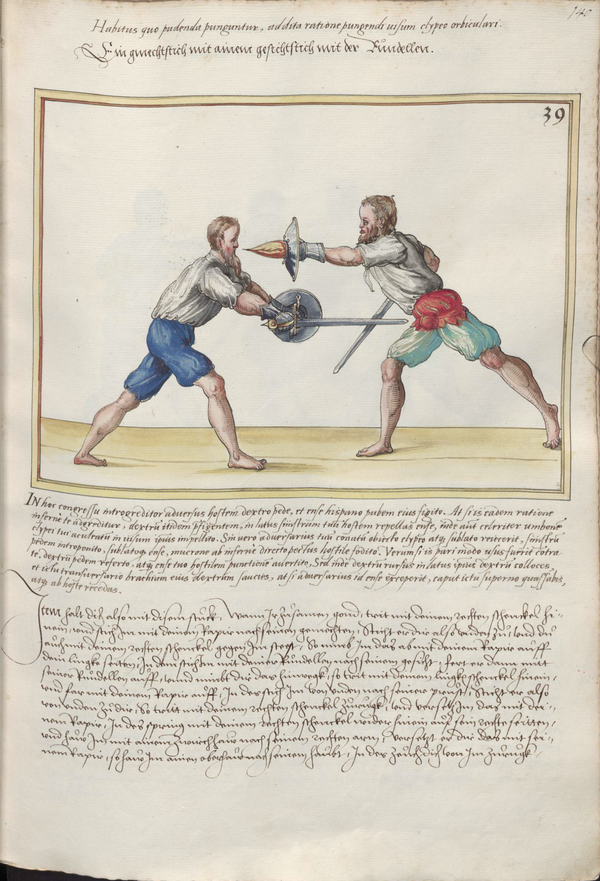 140
Habitus quo pudenda punguntur, addita ratione pungendi uisum clypeo orbiculari.
Ein gmechtstich mit ainem gesichtstich mit der Rundellen.
39
IN hoc congressu introgreditor aduersus hostem dextro pede, et ense hispano pubem eius figito. At si is eadem ratione
inferne te adgreditur, dextrū itidem p̄figentem, in latus sinistrum tuū hostem repellas ense, inde aut celeriter umbone
clypei tui aculeato in uisum ipsius impellito. Sin uero aduersarius tuū conatū obiecto clypeo atq; sublato reiecerit, sinistrū
pedem introponito, sublatoq; ense, mucrone ab inferne directo pectus hostile fodito. Verum si is pari modo usus fuerit contra
te, dextrū pedem referto, atq; ense tuo hostilem punctionē auertito. Sed inde dextrū rursus in latus ipsius dextrū colloces,
et ictu transuersario brachium eius dextrum saucies, at si aduersarius id ense exceperit, caput ictu superno quassabis,
atq; ab hoste recedas.
Item halt dich also mit disem stuckh, Wann Ir zusamen gond, trit mit deinem rechten schenckel hi⸗
nein, und stich Im mit deinem Rapir nach seinen gemechten, Sticht er dir also
auch mit deinem rechten schenckel gegen Im steest, So nimb In das ab mit deinem Rapir auff
dein lingke seiten, In dem stich In mit deiner Rundellen nach seinem gesicht, setzt er dann mit
seiner Rundellen auff, und nimbt dir das hinwegk, so trit mit deinem lingken schenckel hinein,
und far mit deinem Rapir auff, In des stich Im von unden nach seiner prust, Sticht er also
von unden zu dir, So trit mit deinem rechten schenckel zurugk, und versetz Im das mit dei⸗
nem Rapir, In des spring mit deinem rechten schenckel wider hinein auf sein rechte seitten,
und haw Im mit ainem zwirchhaw nach seinem rechten arm, Versetzt er dir das mit sei⸗
nem Rapir, so haw Im ainen oberhaw nach seinem haubt, In des zeuch dich von Im zurugk